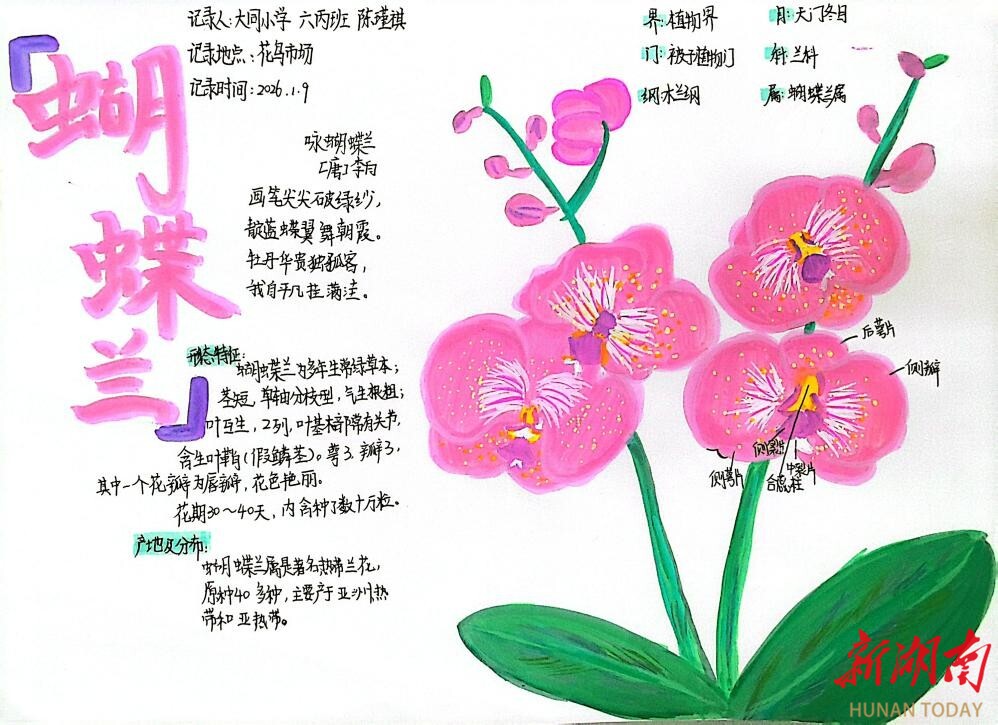 「蝴蝶兰」
记录人:大同小学 六丙班 陈瑾祺
记录地点:花鸟市场
记录时间:2026.1.9
界:植物界
门:被子植物门
纲:木兰纲
目:天门冬目
科:兰科
属:蝴蝶兰属
咏蝴蝶兰
[唐]李白
画笔尖尖破绿纱,
靛蓝蝶翼舞朝霞。
牡丹华贵独孤客,
我自平凡挂满洼。
形态特征:
蝴蝶兰为多年生常绿草本;
茎短,单轴分枝型,气生根粗;
叶互生,2列,叶基部常有关节,
含生叶鞘(假鳞茎)。萼3,瓣3,
其中一个花瓣为唇瓣,花色艳丽。
花期30~40天,内含种子数十万粒。
产地及分布:
蝴蝶兰属是著名热带兰花,
原种40多种,主要产于亚洲热
带和亚热带。
后萼片
侧瓣
侧裂片
中裂片
合蕊柱
侧萼片
新湖南
HUNAN TODAY